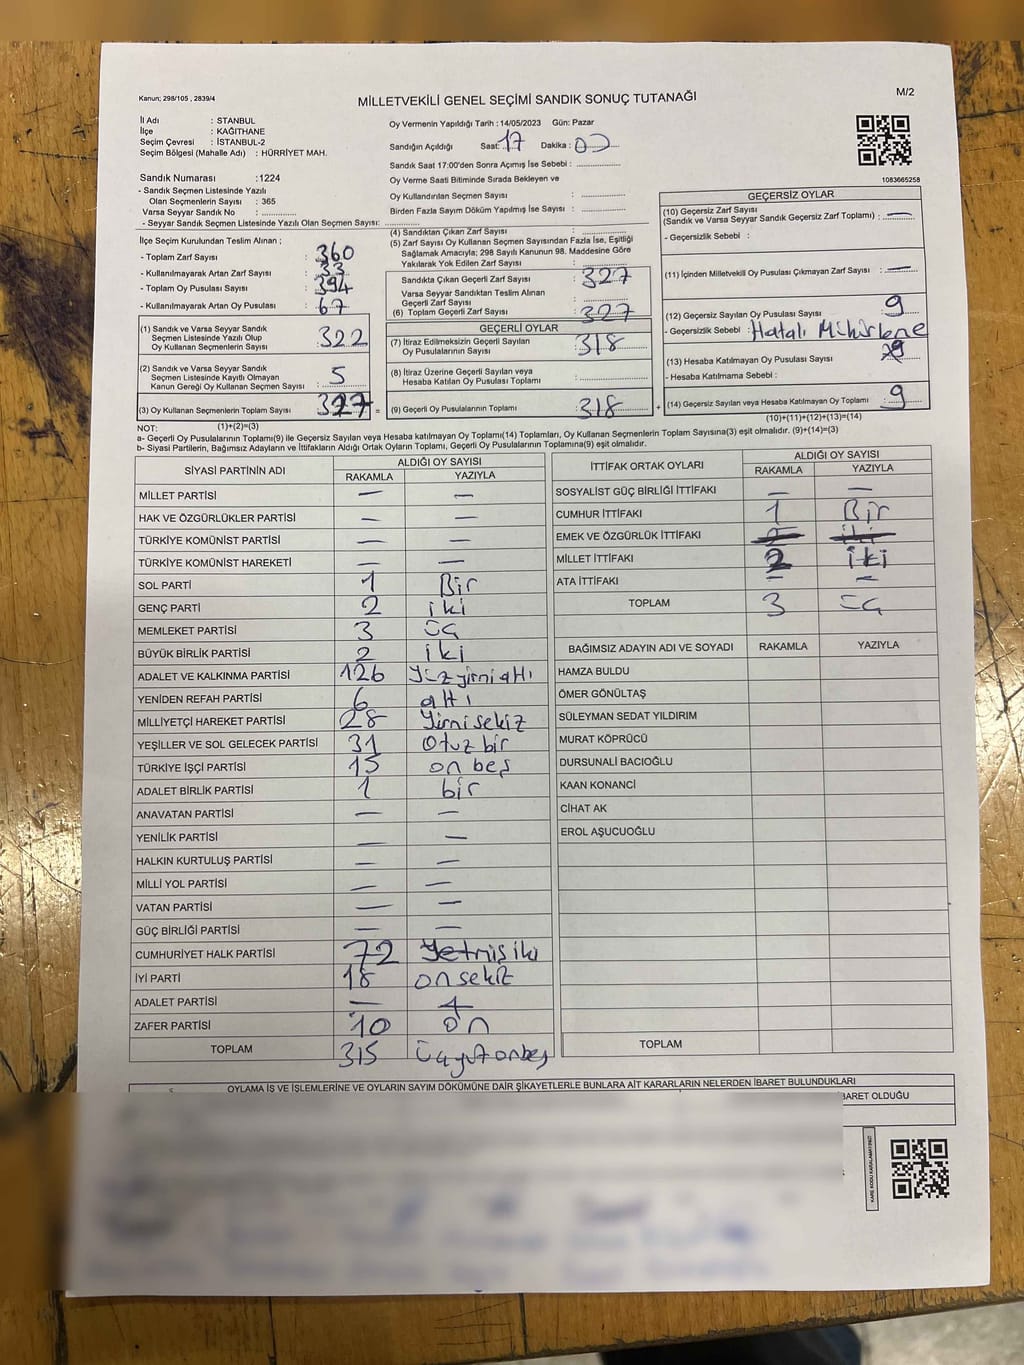 Kanun; 298/105 , 2839/4
MİLLETVEKİLİ GENEL SEÇİMİ SANDIK SONUÇ TUTANAĞI
M/2
İl Adı : STANBUL
İlçe : KAĞITHANE
Seçim Çevresi : İSTANBUL-2
Seçim Bölgesi (Mahalle Adı) : HÜRRİYET MAH.
Sandık Numarası :1224
- Sandık Seçmen Listesinde Yazılı
Olan Seçmenlerin Sayısı : 365
Varsa Seyyar Sandık No : ............
- Seyyar Sandık Seçmen Listesinde Yazılı Olan Seçmen Sayısı: ............
Oy Vermenin Yapıldığı Tarih :14/05/2023 Gün: Pazar
Sandığın Açıldığı Saat: 17 Dakika :
Sandık Saat 17:00'den Sonra Açımış İse Sebebi : ............
Oy Verme Saati Bitiminde Sırada Bekleyen ve
Oy Kullandırılan Seçmen Sayısı : ............
Birden Fazla Sayım Döküm Yapılmış İse Sayısı : ............
1083665258
İlçe Seçim Kurulundan Teslim Alınan ;
- Toplam Zarf Sayısı : 360
- Kullanılmayarak Artan Zarf Sayısı : 33
- Toplam Oy Pusulası Sayısı : 394
- Kullanılmayarak Artan Oy Pusulası : 67
(1) Sandık ve Varsa Seyyar Sandık
Seçmen Listesinde Yazılı Olup
Oy Kullanan Seçmenlerin Sayısı : 322
(2) Sandık ve Varsa Seyyar Sandık
Seçmen Listesinde Kayıtlı Olmayan
Kanun Gereği Oy Kullanan Seçmen Sayısı : 5
(3) Oy Kullanan Seçmenlerin Toplam Sayısı 327 =
(4) Sandıktan Çıkan Zarf Sayısı : ............
(5) Zarf Sayısı Oy Kullanan Seçmen Sayısından Fazla İse, Eşitliği
Sağlamak Amacıyla; 298 Sayılı Kanunun 98. Maddesine Göre
Yakılarak Yok Edilen Zarf Sayısı : ............
Sandıkta Çıkan Geçerli Zarf Sayısı : 327
Varsa Seyyar Sandıktan Teslim Alınan
Geçerli Zarf Sayısı : ............
(6) Toplam Geçerli Zarf Sayısı : 327
GEÇERLİ OYLAR
(7) İtiraz Edilmeksizin Geçerli Sayılan
Oy Pusulalarının Sayısı : 318
(8) İtiraz Üzerine Geçerli Sayılan veya
Hesaba Katılan Oy Pusulası Toplamı : ............
(9) Geçerli Oy Pusulalarının Toplamı : 318 +
GEÇERSİZ OYLAR
(10) Geçersiz Zarf Sayısı
(Sandık ve Varsa Seyyar Sandık Geçersiz Zarf Toplamı) : —
- Geçersizlik Sebebi :
(11) İçinden Milletvekili Oy Pusulası Çıkmayan Zarf Sayısı : —
(12) Geçersiz Sayılan Oy Pusulası Sayısı : 9
- Geçersizlik Sebebi : Hatalı Mühürleme
(13) Hesaba Katılmayan Oy Pusulası Sayısı
- Hesaba Katılmama Sebebi :
(14) Geçersiz Sayılan veya Hesaba Katılmayan Oy Toplamı : 9
NOT: (1)+(2)=(3)
(10)+(11)+(12)+(13)=(14)
a- Geçerli Oy Pusulalarının Toplamı(9) ile Geçersiz Sayılan veya Hesaba katılmayan Oy Toplamı(14) Toplamları, Oy Kullanan Seçmenlerin Toplam Sayısına(3) eşit olmalıdır. (9)+(14)=(3)
b- Siyasi Partilerin, Bağımsız Adayların ve İttifakların Aldığı Ortak Oyların Toplamı, Geçerli Oy Pusulalarının Toplamına(9) eşit olmalıdır.
SİYASİ PARTİNİN ADI
ALDIĞI OY SAYISI
RAKAMLA YAZIYLA
MİLLET PARTİSİ — —
HAK VE ÖZGÜRLÜKLER PARTİSİ — —
TÜRKİYE KOMÜNİST PARTİSİ — —
TÜRKİYE KOMÜNİST HAREKETİ — —
SOL PARTİ 1 Bir
GENÇ PARTİ 2 iki
MEMLEKET PARTİSİ 3 üç
BÜYÜK BİRLİK PARTİSİ 2 iki
ADALET VE KALKINMA PARTİSİ 126 Yüzyirmialtı
YENİDEN REFAH PARTİSİ 6 altı
MİLLİYETÇİ HAREKET PARTİSİ 28 Yirmisekiz
YEŞİLLER VE SOL GELECEK PARTİSİ 31 Otuzbir
TÜRKİYE İŞÇİ PARTİSİ 15 onbeş
ADALET BİRLİK PARTİSİ 1 bir
ANAVATAN PARTİSİ — —
YENİLİK PARTİSİ — —
HALKIN KURTULUŞ PARTİSİ — —
MİLLİ YOL PARTİSİ — —
VATAN PARTİSİ — —
GÜÇ BİRLİĞİ PARTİSİ — —
CUMHURİYET HALK PARTİSİ 72 Yetmişiki
İYİ PARTİ 18 onsekiz
ADALET PARTİSİ —
ZAFER PARTİSİ 10 on
TOPLAM 315 üçyüzonbeş
İTTİFAK ORTAK OYLARI
ALDIĞI OY SAYISI
RAKAMLA YAZIYLA
SOSYALİST GÜÇ BİRLİĞİ İTTİFAKI — —
CUMHUR İTTİFAKI 1 Bir
EMEK VE ÖZGÜRLÜK İTTİFAKI 2 iki
MİLLET İTTİFAKI 2 iki
ATA İTTİFAKI — —
TOPLAM 3 üç
BAĞIMSIZ ADAYIN ADI VE SOYADI RAKAMLA YAZIYLA
HAMZA BULDU
ÖMER GÖNÜLTAŞ
SÜLEYMAN SEDAT YILDIRIM
MURAT KÖPRÜCÜ
DURSUNALİ BACIOĞLU
KAAN KONANCİ
CİHAT AK
EROL AŞUCUOĞLU
TOPLAM
OYLAMA İŞ VE İŞLEMLERİNE VE OYLARIN SAYIM DÖKÜMÜNE DAİR ŞİKAYETLERLE BUNLARA AİT KARARLARIN NELERDEN İBARET BULUNDUKLARI
BARET OLDUĞU
KARE KODU KARALAMAYINIZ!